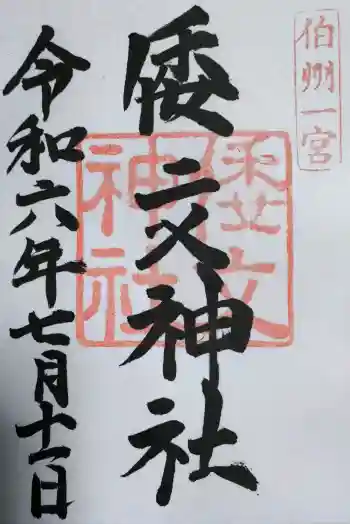 伯州一宮
倭文神社
委文神社
令和六年七月十一日